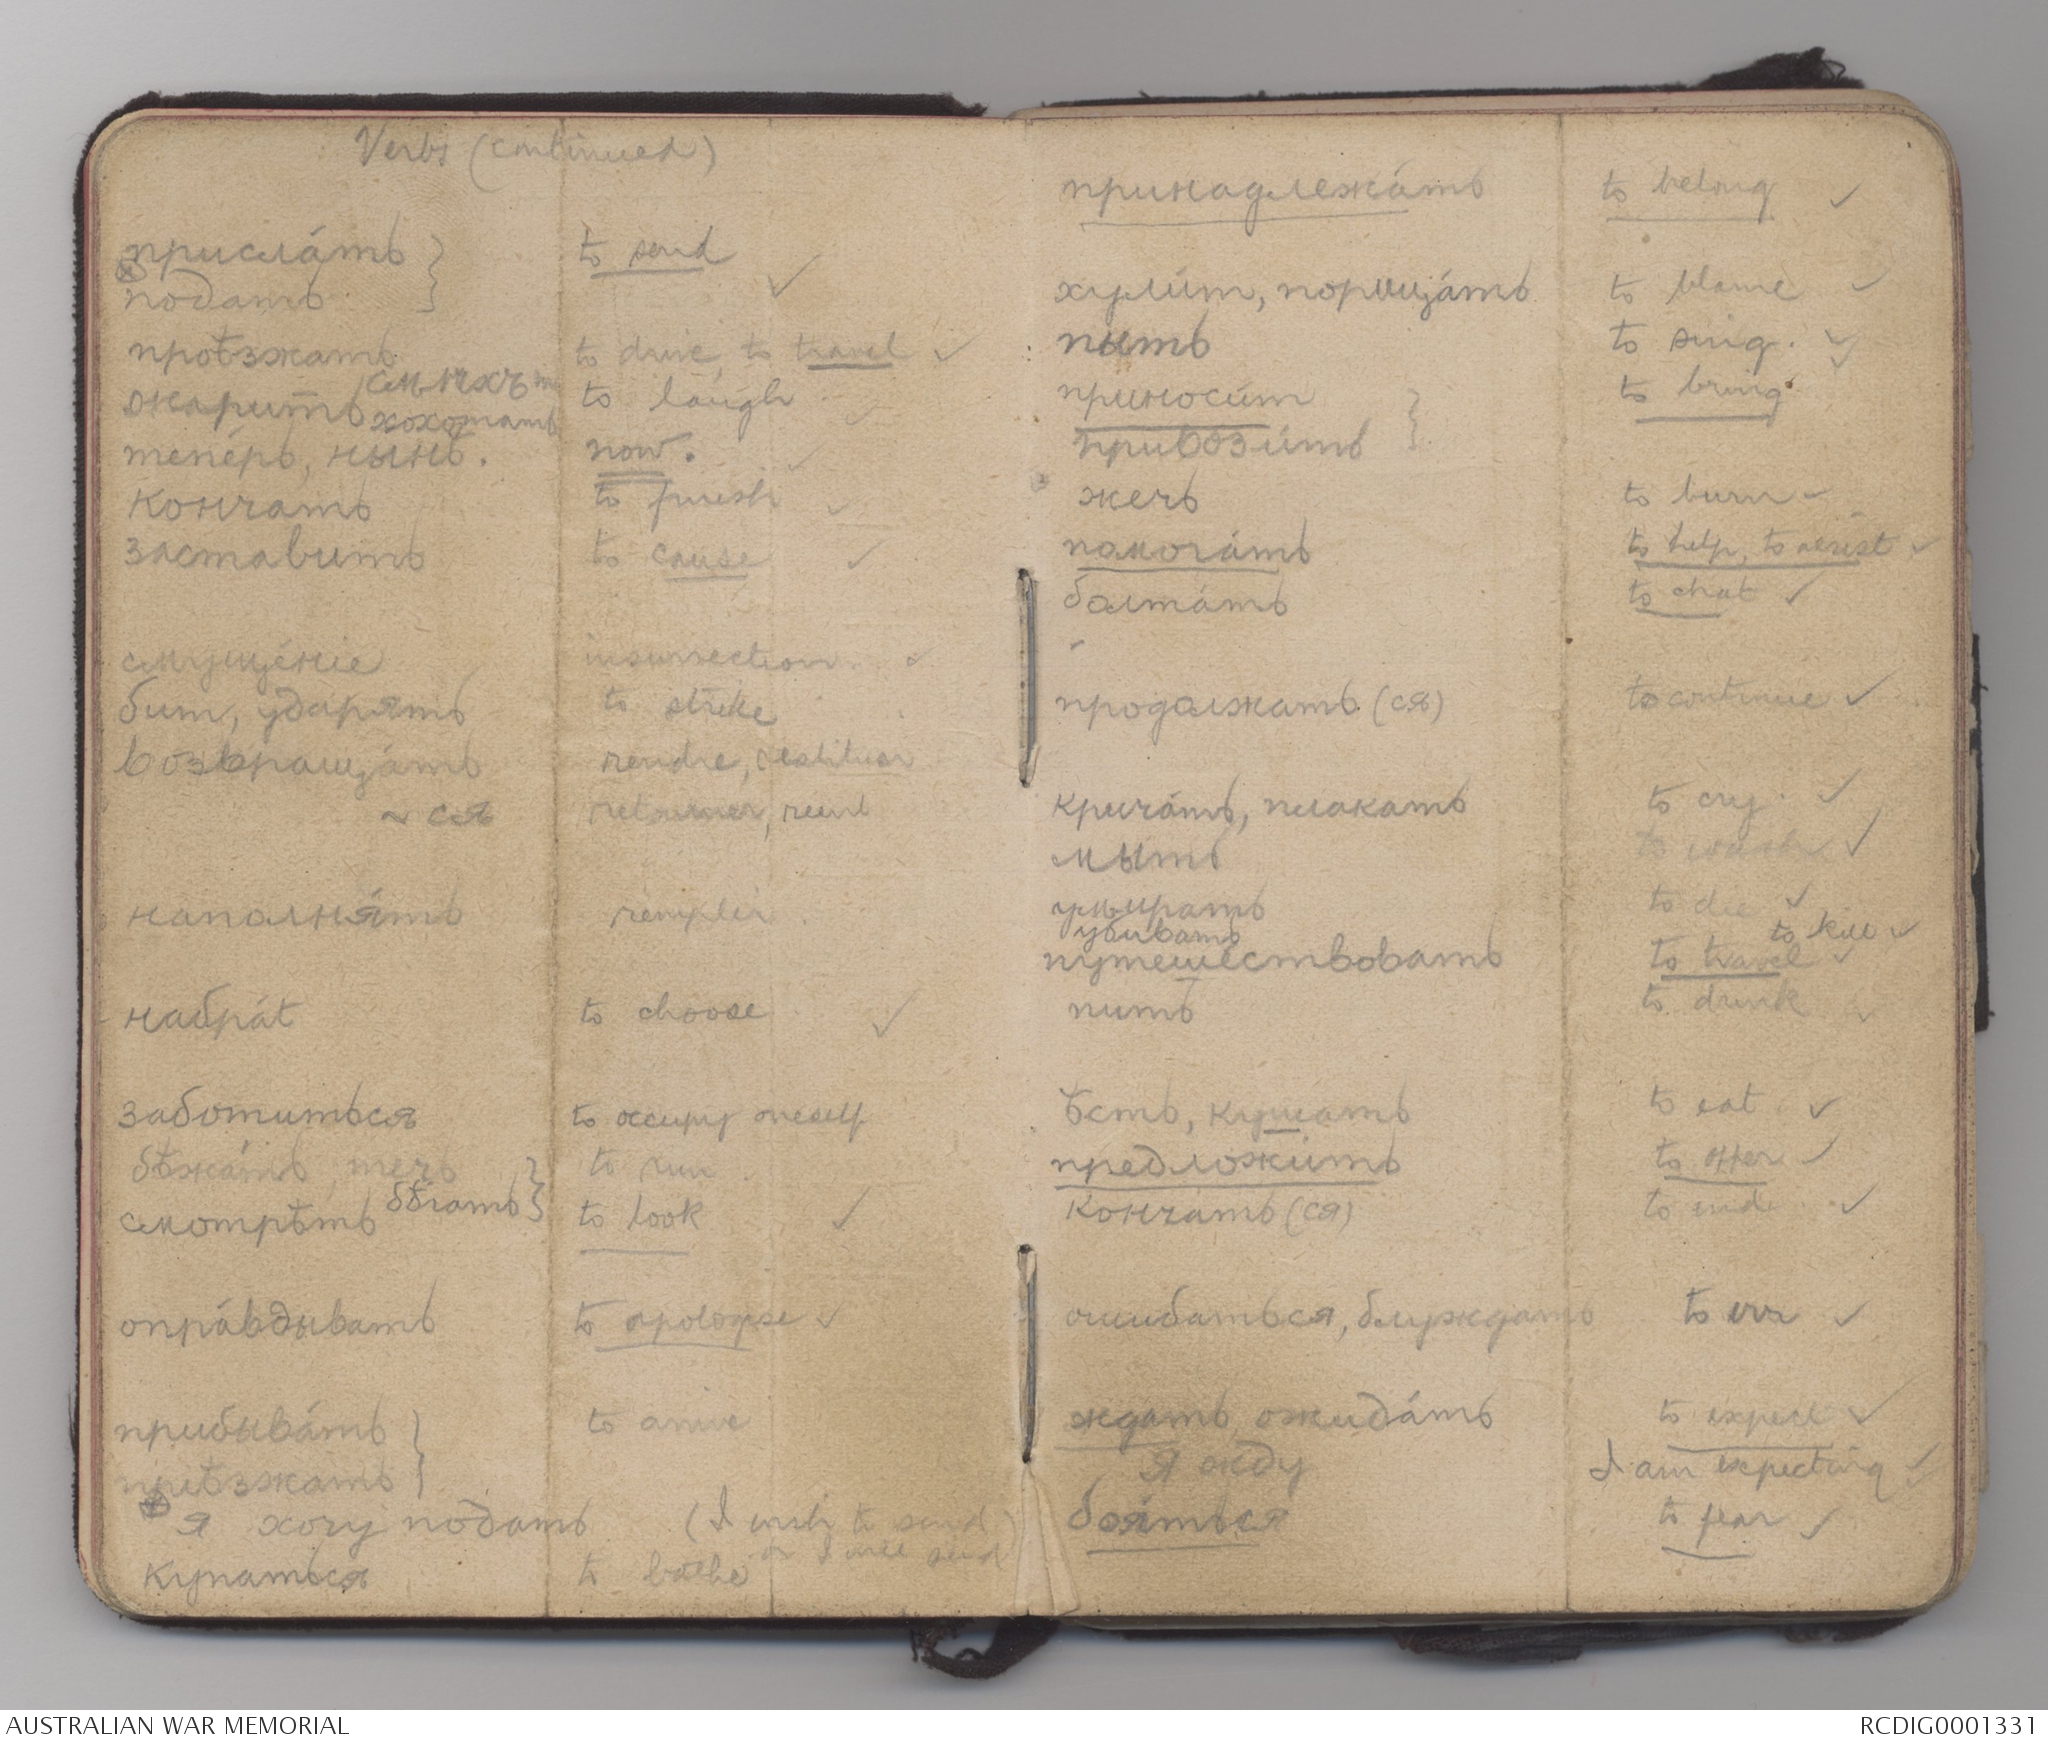 Verbs (continued)
присла́ть } to send ✓
подать
проѣзжать to drive, to travel ✓
жарить хохотать to laugh ✓
тепе́рь, нынѣ. now. ✓
кончать to finish ✓
заставить to cause ✓
смуще́ніе insurrection ✓
бит, ударять to strike
возвраща́ть rendre, restituer
~ ся retourner,
наполня́ть remplir.
набра́t to choose ✓
заботиться to occupy oneself
бѣжа́ть, течь } to run
бѣгать
смотрѣть to look ✓
опра́вдывать to apologise ✓
прибыва́ть } to arrive
пріѣзжать
я хочу подать (I wish to send)
or I will send
купаться to bathe
принадлежа́ть to belong ✓
хули́т, порица́ть to blame ✓
пыть to sing. ✓
приноси́т } to bring ✓
привози́ть
жечь to burn ✓
помога́ть to help, to assist ✓
болта́ть to chat ✓
продолжать (ся) to continue ✓
крича́ть, плакать to cry ✓
мыть to wash ✓
умирать to die ✓
убивать to kill ✓
путешествовать to travel ✓
пить to drink ✓
ѣсть, кушать to eat ✓
предложи́ть to offer ✓
Конча́ть (ся) to end ✓
ошибаться, блуждать to err ✓
ждать ожида́ть to expect ✓
Я жду I am expecting ✓
боя́ться to fear ✓
AUSTRALIAN WAR MEMORIAL RCDIG0001331